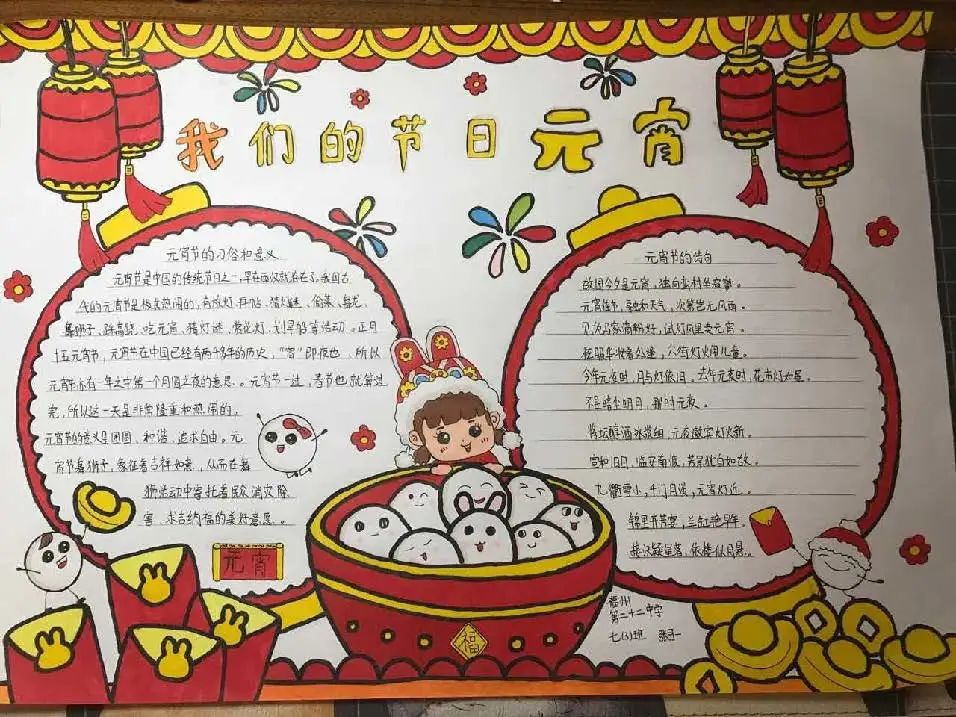 我们的节日元宵
元宵节的习俗和意义
元宵节是中国的传统节日之一,早在西汉就存在了,我国古
代的元宵节是极其热闹的,有放灯、猜灯谜、偷菜、舞龙、
舞狮子、踩高跷、吃元宵、猜灯谜、赏花灯、划旱船等活动。正月
十五元宵节,元宵节在中国已经有两千多年的历史,“宵”即夜也,所以
元宵亦有一年之中第一个月圆之夜的意思。元宵节一过,春节也就算过
完,所以这一天是非常隆重和热闹的。
元宵节的意义是团圆、和谐、追求自由。元
宵节舞狮子,象征着吉祥如意,从而在舞
狮活动中寄托着民众消灾除
害、求吉纳福的美好意愿。
元宵
元宵节的诗句
故园今夕是元宵,独向蛮村坐寂寥。
元宵佳节,融和天气,次第岂无风雨。
见说马家滴粉好,试灯风里卖元宵。
袨服华妆着处逢,六街灯火闹儿童。
今年元夜时,月与灯依旧。去年元夜时,花市灯如昼。
不是暗尘明月,那时元夜。
宣和旧日,临安南渡,芳景犹自如故。
九衢雪小,千门月淡,元宵灯近。
福州
第二十二中学
七
班
福